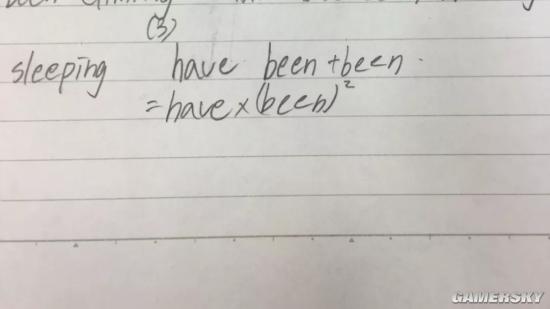 (3)
sleeping have been + been.
= have × (been)²
GAMERSKY